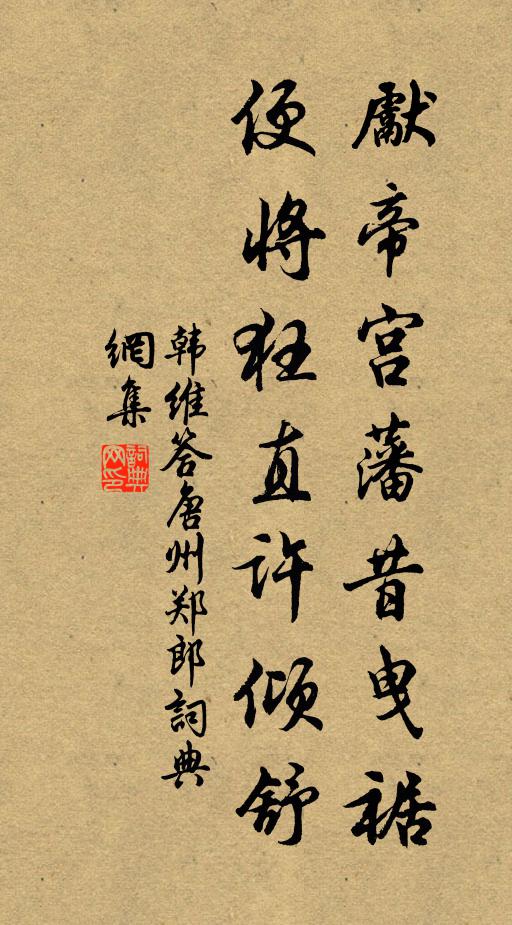 獻帝宫藩昔曳裾
便將狂直許傾舒
韩维答唐州郑郎詞典
網集
詞典網印